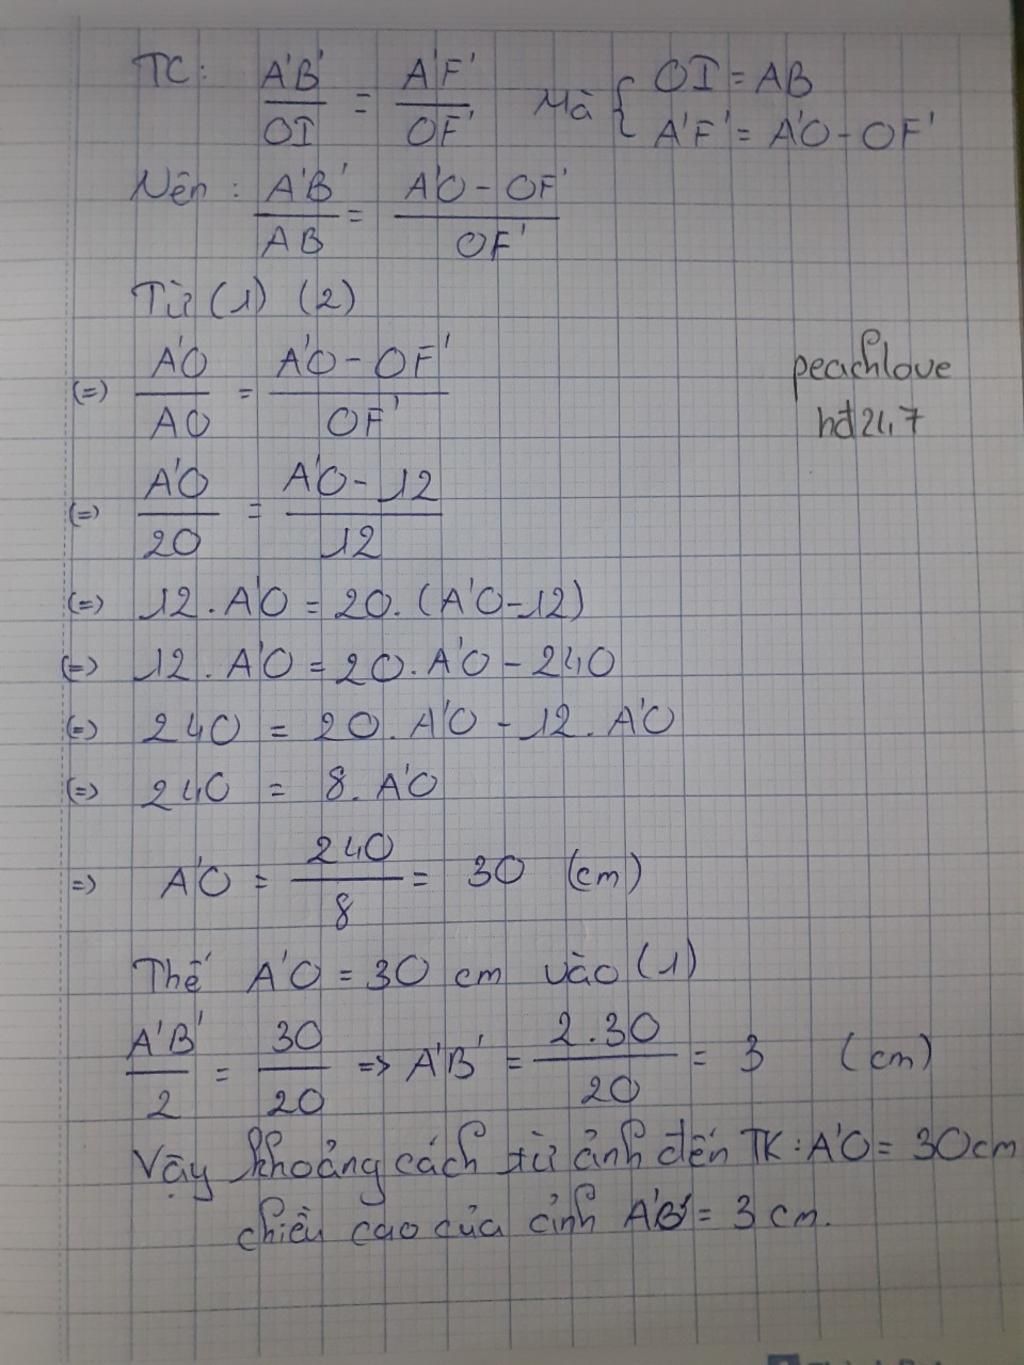 TC: A'B'/OI = A'F'/OF' Mà { OI = AB
A'F' = A'O - OF'
Nên : A'B'/AB = A'O - OF'/OF'
Từ (1) (2)
(=) A'O/AO = A'O - OF'/OF'
peachlove
hđ 24,7
(=) A'O/20 = A'O - 12/12
(=) 12 . A'O = 20. (A'O - 12)
(=) 12 . A'O = 20. A'O - 240
(=) 240 = 20. A'O - 12. A'O
(=) 240 = 8. A'O
=) A'O = 240/8 = 30 (cm)
Thế A'O = 30 cm vào (1)
A'B'/2 = 30/20 => A'B' = 2.30/20 = 3 (cm)
Vậy khoảng cách từ ảnh đến TK : A'O = 30cm
chiều cao của ảnh A'B' = 3 cm.